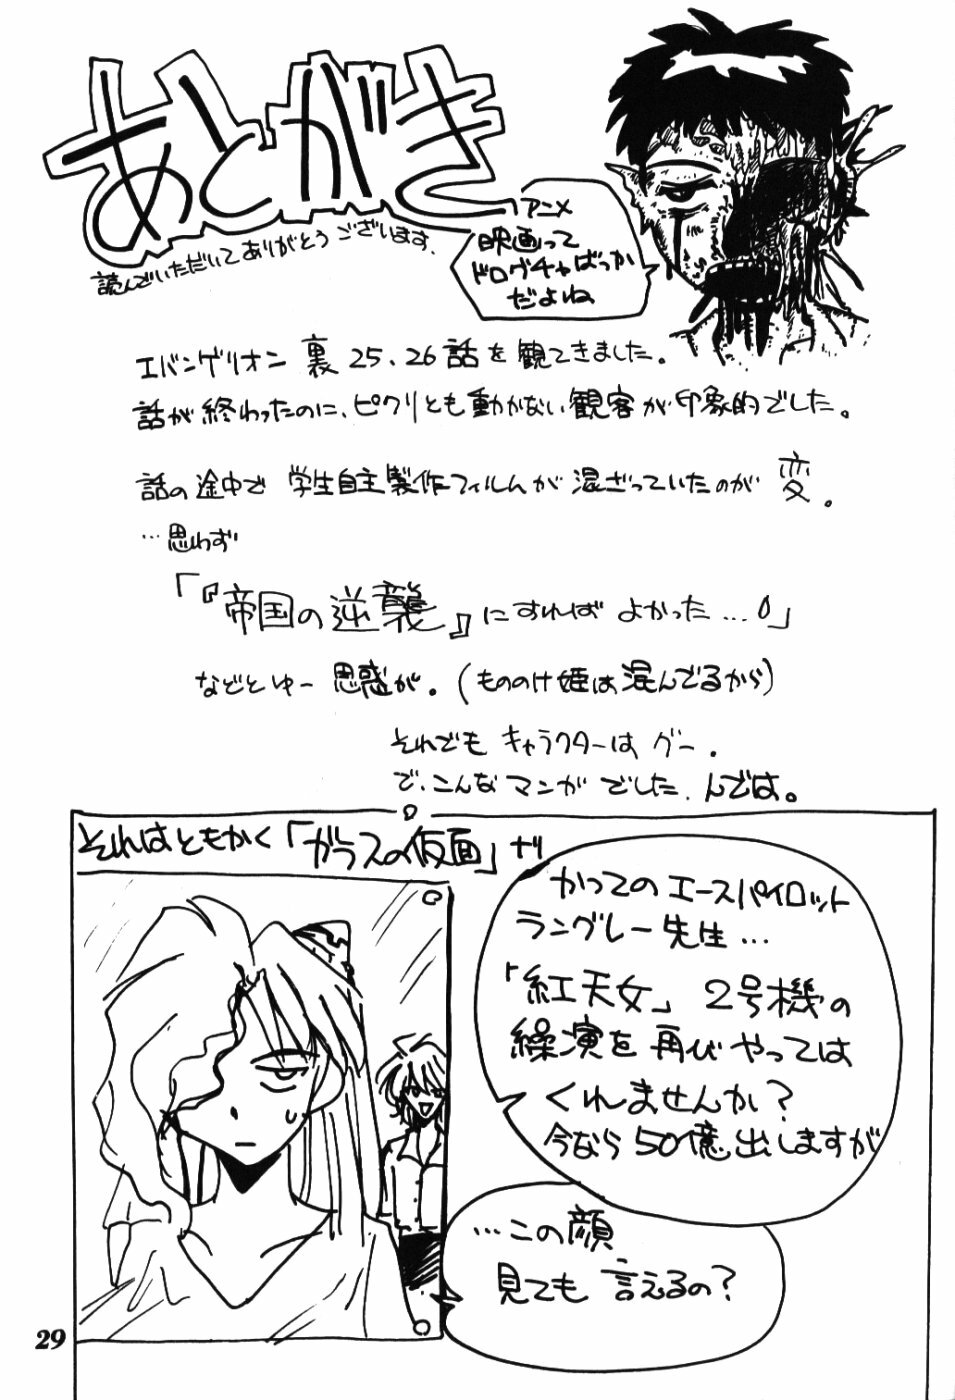 あとがき
読んでいただいてありがとうございます.
アニメ
映画って
ドログチャばっか
だよね
エバンゲリオン 裏 25、26話を観てきました。
話が終わったのに、ピクリとも動かない観客が印象的でした。
話の途中で 学生自主製作フィルムが混ざっていたのが 変。
…思わず
「『帝国の逆襲』にすればよかった…」
などとゆー思惑が。(もののけ姫は混んでるから)
それでもキャラクターはグー.
で、こんなマンガでした. んでは。
それはともかく「ガラスの仮面」ナリ
かつてのエースパイロット
ラングレー先生…
「紅天女」2号機の
操演を再びやっては
くれませんか?
今なら50億出しますが
…この顔
見ても言えるの?
29